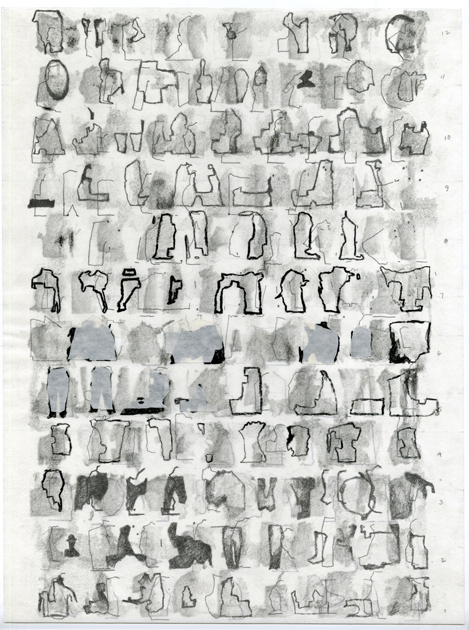 12
11
10
9
8
7
6
4
3
2
1